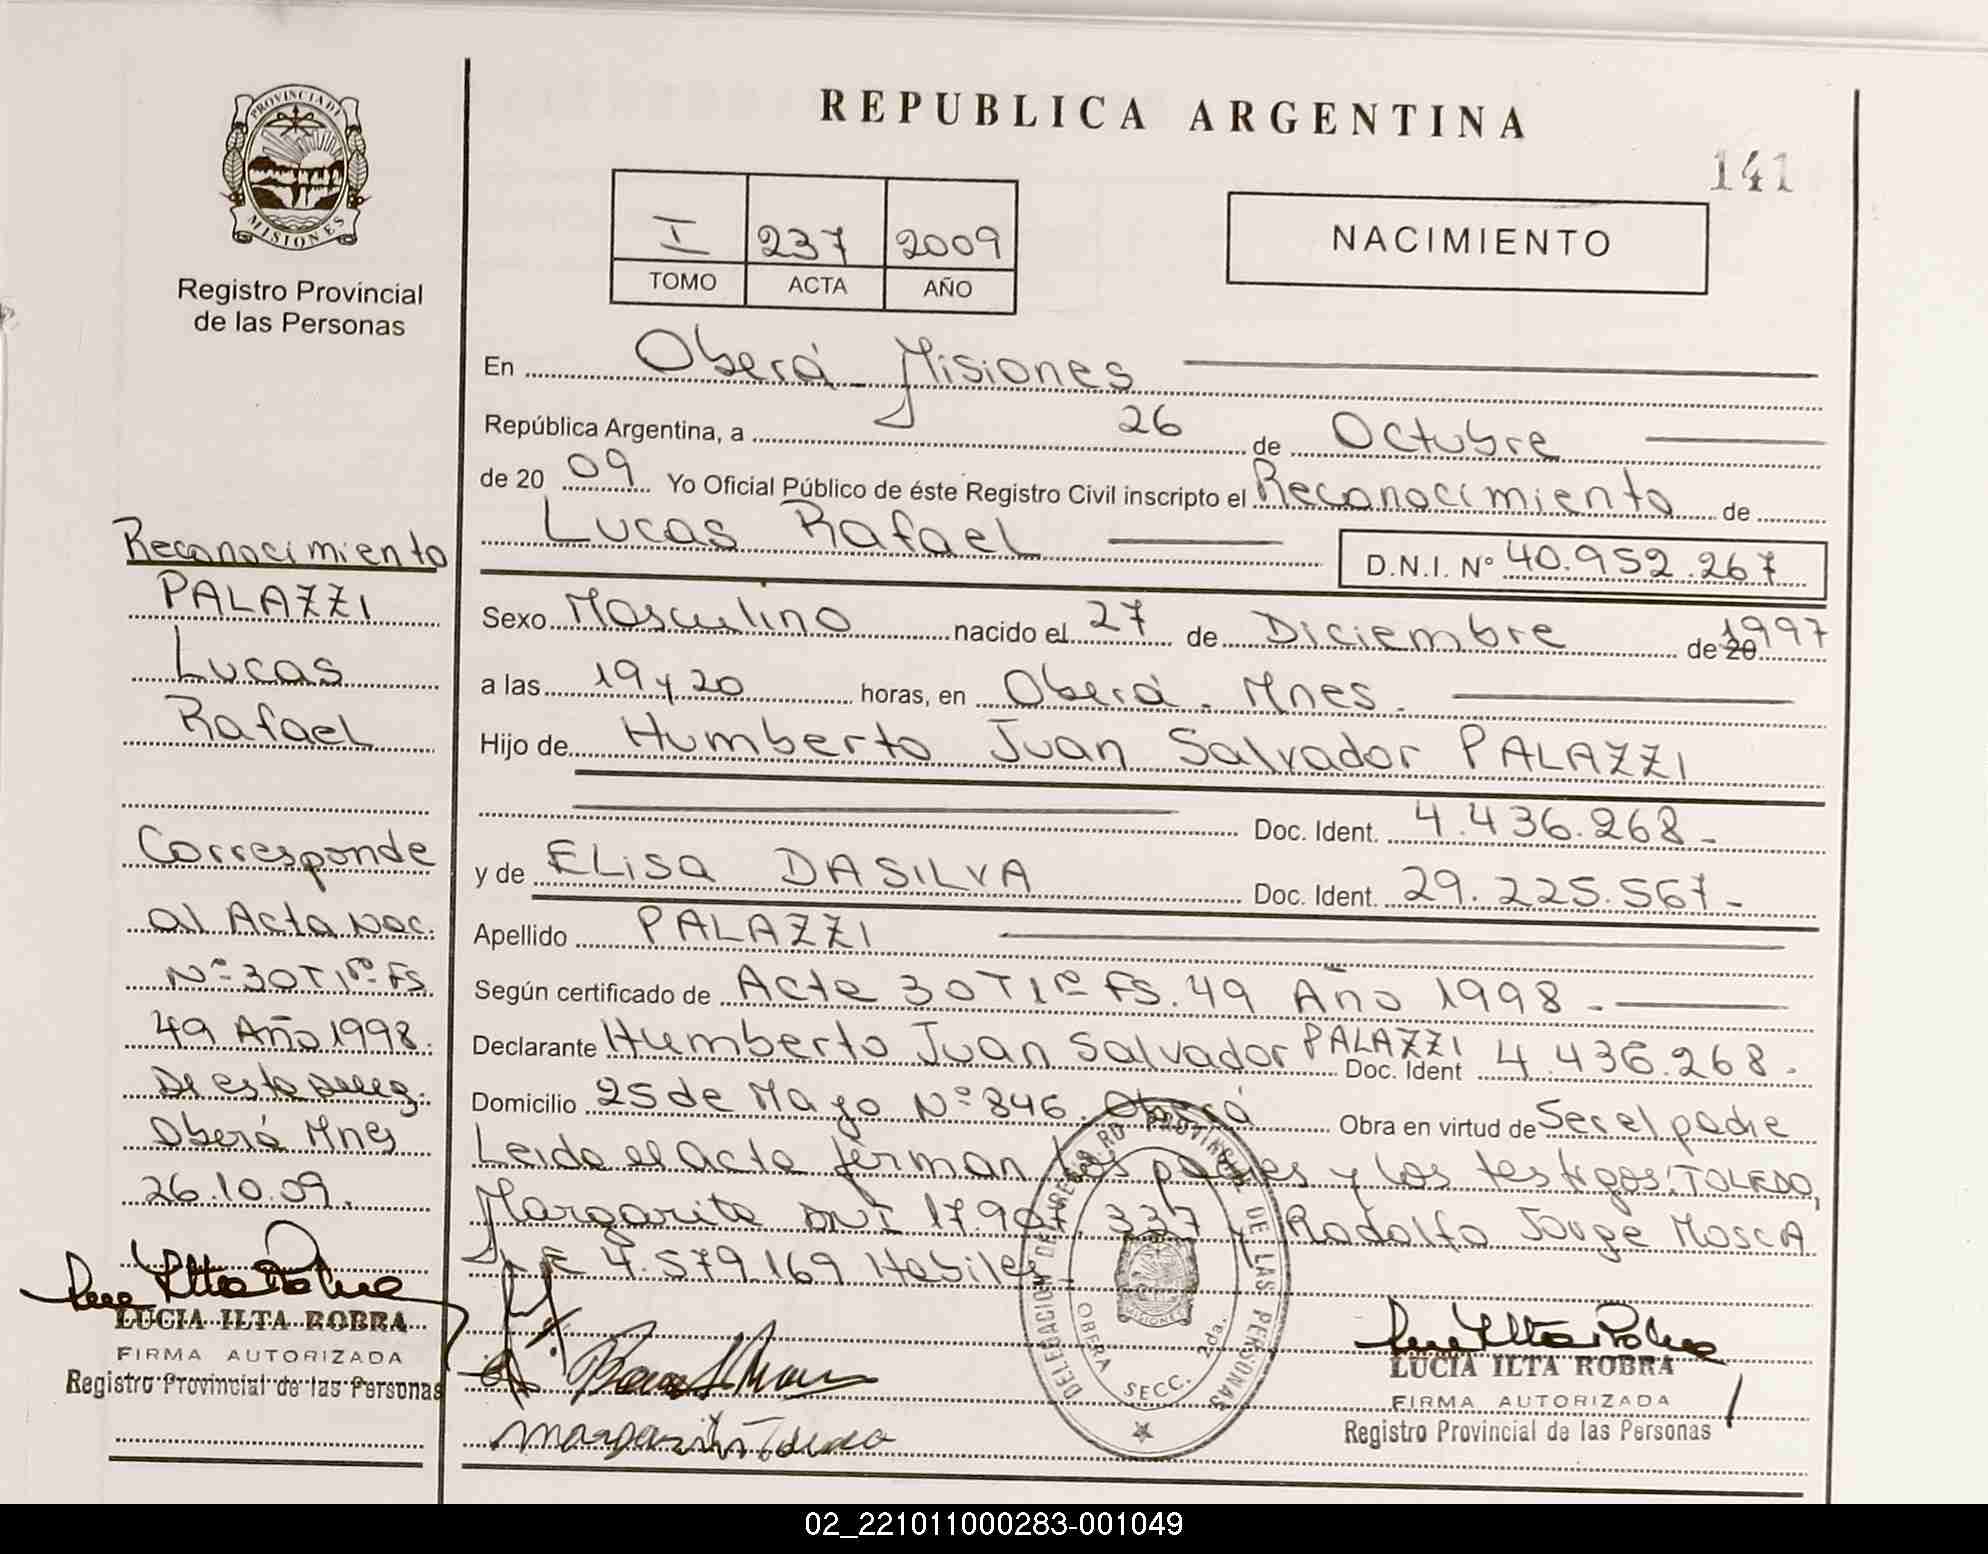 REPUBLICA ARGENTINA
141
PROVINCIA DE
MISIONES
Registro Provincial
de las Personas
I 237 2009
TOMO ACTA AÑO
NACIMIENTO
En Oberá Misiones
República Argentina, a 26 de Octubre
de 20 09 Yo Oficial Público de éste Registro Civil inscripto el Reconocimiento de
Lucas Rafael D.N.I. Nº 40.952.267
Sexo Masculino nacido el 27 de Diciembre de 20 1997
a las 19 y 20 horas, en Oberá. Mnes.
Hijo de Humberto Juan Salvador PALAZZI
Doc. Ident. 4.436.268.-
y de Elisa DASILVA Doc. Ident. 29.225.567-
Apellido PALAZZI
Según certificado de Acta 30 T 1ro FS. 49 Año 1998.-
Declarante Humberto Juan Salvador PALAZZI Doc. Ident 4.436.268.
Domicilio 25 de Mayo Nº 846. Oberá Obra en virtud de Ser el padre
Leida el acta firman los padres y los testigos: TOLEDO,
Margarita DNI 17.907.337 y Rodolfo Jorge MOSCA
L.E 4.579.169 Habiles
Reconocimiento
PALAZZI
Lucas
Rafael
Corresponde
al Acta Nac.
Nº 30 T 1ro FS.
49 Año 1998.
De esta Deleg.
Oberá Mnes
26.10.09.
LUCIA ILTA ROBRA
FIRMA AUTORIZADA
Registro Provincial de las Personas
Margarita Toledo
DELEGACION DE REGISTRO PROVINCIAL DE LAS PERSONAS
OBERA SECC. 2da.
MISIONES
LUCIA ILTA ROBRA
FIRMA AUTORIZADA
Registro Provincial de las Personas
02_221011000283-001049